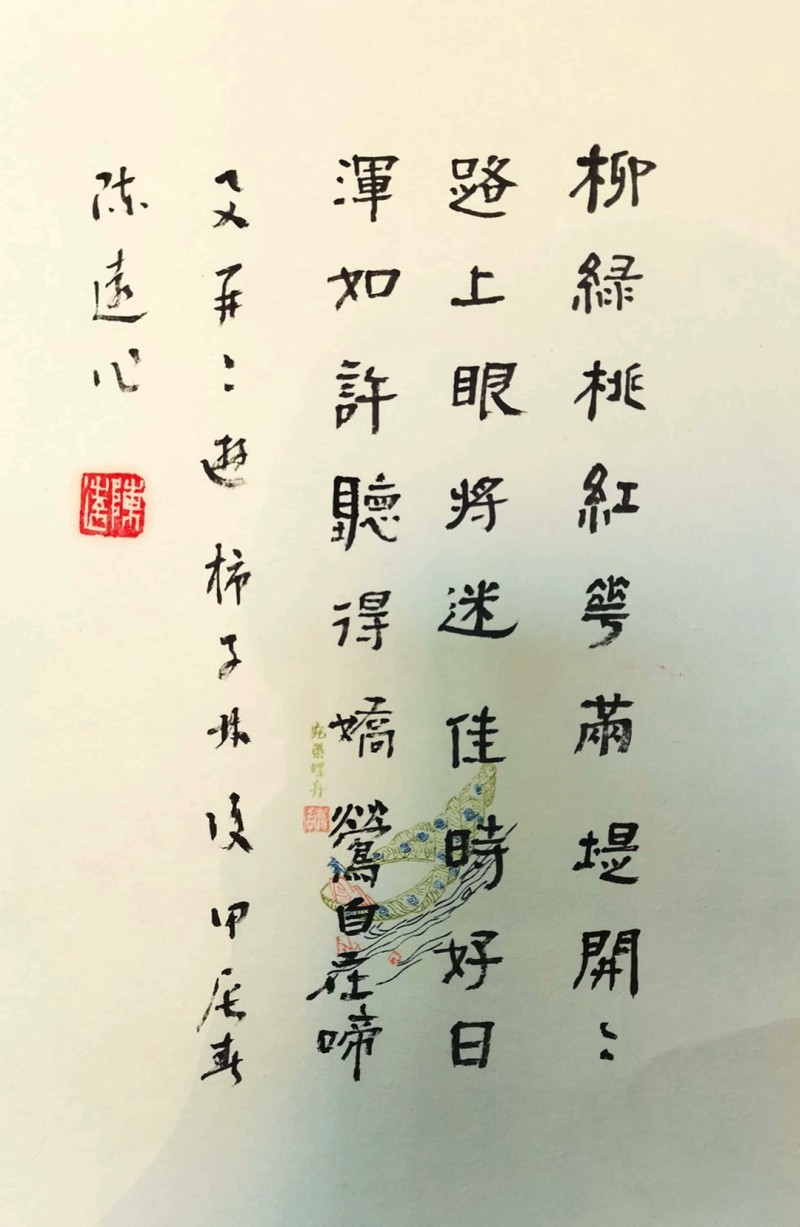 柳綠桃紅華滿堤開〻
路上眼將迷佳時好日
渾如許聽得嬌鶯自在啼
又再〻遊柿子林後甲辰春
陳遠心
陳遠